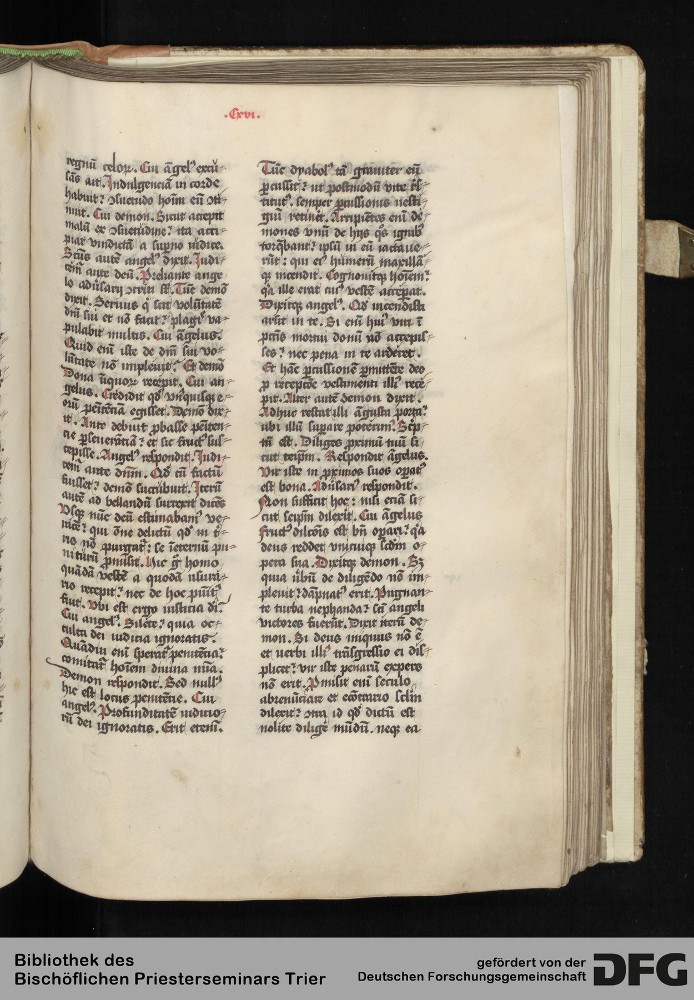 .Cxvi.
regnū celoꝝ. Cui āgelꝰ excu-
sās ait. Indulgenciā in corde
habuit? ꝯsuetudo hoīm eū oti-
nuit. Cui demon. Sicut accepit
malū ex ꝯsuetudine? ita acci-
piat vindictā a supno iudice.
Scūs autē angelꝰ dixit. Judi-
cem̄ ante deū. Preliante ange-
lo aduˢarij ꝯtriti sūt. Tūc demō
dixit. Seruus qͥ scit volūtatē
dn̄i sui et nō facit? plagꝭ va-
pulabit multis. Cui āgelus.
Quid em̄ iste de dn̄i sui vo-
lūtate nō impleuit? Et demō
Dona iīquoꝝ recepit. Cui an-
gelus. Credidit qd̓ vnꝰquisqꝫ e-
orū penitēciā egisset. Demō dix-
it. Ante debuit ꝓbasse peniten-
cie ꝑseuerātiā? et sic fructꝰ sus-
cepisse. Angelꝰ respondit. Judi-
cem̄ ante dn̄m. Qd̓ cū factū
fuisset? demō sucubuit. Iterū
autē ad bellandū surrexit dicēs
Usqꝫ nūc deū estimabam ve-
racē? qui om̄e delictū qd̓ in t̓-
ris nō purgat̓? se īeternū pu-
niturū ꝓmisit. Hic gͦ homo
quādā vestē a quodā usura-
rio recepit? nec de hoc pūitꝰ
fuit. Ubi est ergo iusticia dei.
Cui angelꝰ. Silete? quia oc-
culta dei iudicia ignoratis.
Quādiu em̄ speratꝰ penitēcia?
comitat̓ hoīem diuina mīa.
Demon respondit. Sed nullꝰ
hic est locus penitēcie. Cui
angelꝰ. Profunditatē iudicio-
rū dei ignoratis. Erit etem̄.
Tūc dyabolꝰ tā grauiter eū
ꝑcussit? ut postmodū vite re-
stitutꝰ. semper ꝑcussionis vesti-
giū retinēt. Arripiētes em̄ de-
mones vnū de hijs qͦs ignibꝰ
torq̄bant? ipsū in eū iactaue-
rūt? qui eiꝰ humerū maxillā-
qꝫ incendit. Cognouitqꝫ hoīem?
qͥa ille erat cuiꝰ vestē acceꝑat.
Dixitqꝫ angelꝰ. Qd̓ incendisti
arsit in te. Si em̄ huiꝰ viri ī
pctīs mortui donū nō accepis-
ses? nec pena in te arderet.
Et hāc ꝑcussionē ꝑmittēte deo
ꝓ recepcōe vestimenti illiꝰ rece-
pit. Alter autē demon dixit.
Adhuc restat illi āgusta porta?
ubi illū suꝑare poterim̄. Scͥp-
tū est. Diliges ꝓximū tuū si-
cut teip̄m. Respondit āgelus.
Vir iste in ꝓximos suos oꝑatꝰ
est bona. Aduˢariꝰ respondit.
Non sufficit hoc? nisi eciā si-
cut seip̄m dilexit. Cui āgelus
Fructꝰ dilcōis est bn̄ oꝑari? qͥa
deus reddet vnicuiqꝫ scd̄m o-
pera sua. Dixitqꝫ demon. Sꝫ
quia ūbū de diligēdo nō im-
pleuit? dāpnatꝰ erit. Pugnan-
te turba nephanda? scī angeli
victores fuerūt. Dixit iterū de-
mon. Si deus iniquus nō ē
et uerbi illiꝰ trāsgressio ei dis-
plicet? vir iste penarū expers
nō erit. Pmisit em̄ seculo
abrenūciare et ecōtrario sclm̄
dilexit? ꝯtra id qd̓ dictū est
nolite diligē mūdū. neqꝫ ea
Bibliothek des
Bischöflichen Priesterseminars Trier
gefördert von der
Deutschen Forschungsgemeinschaft
DFG